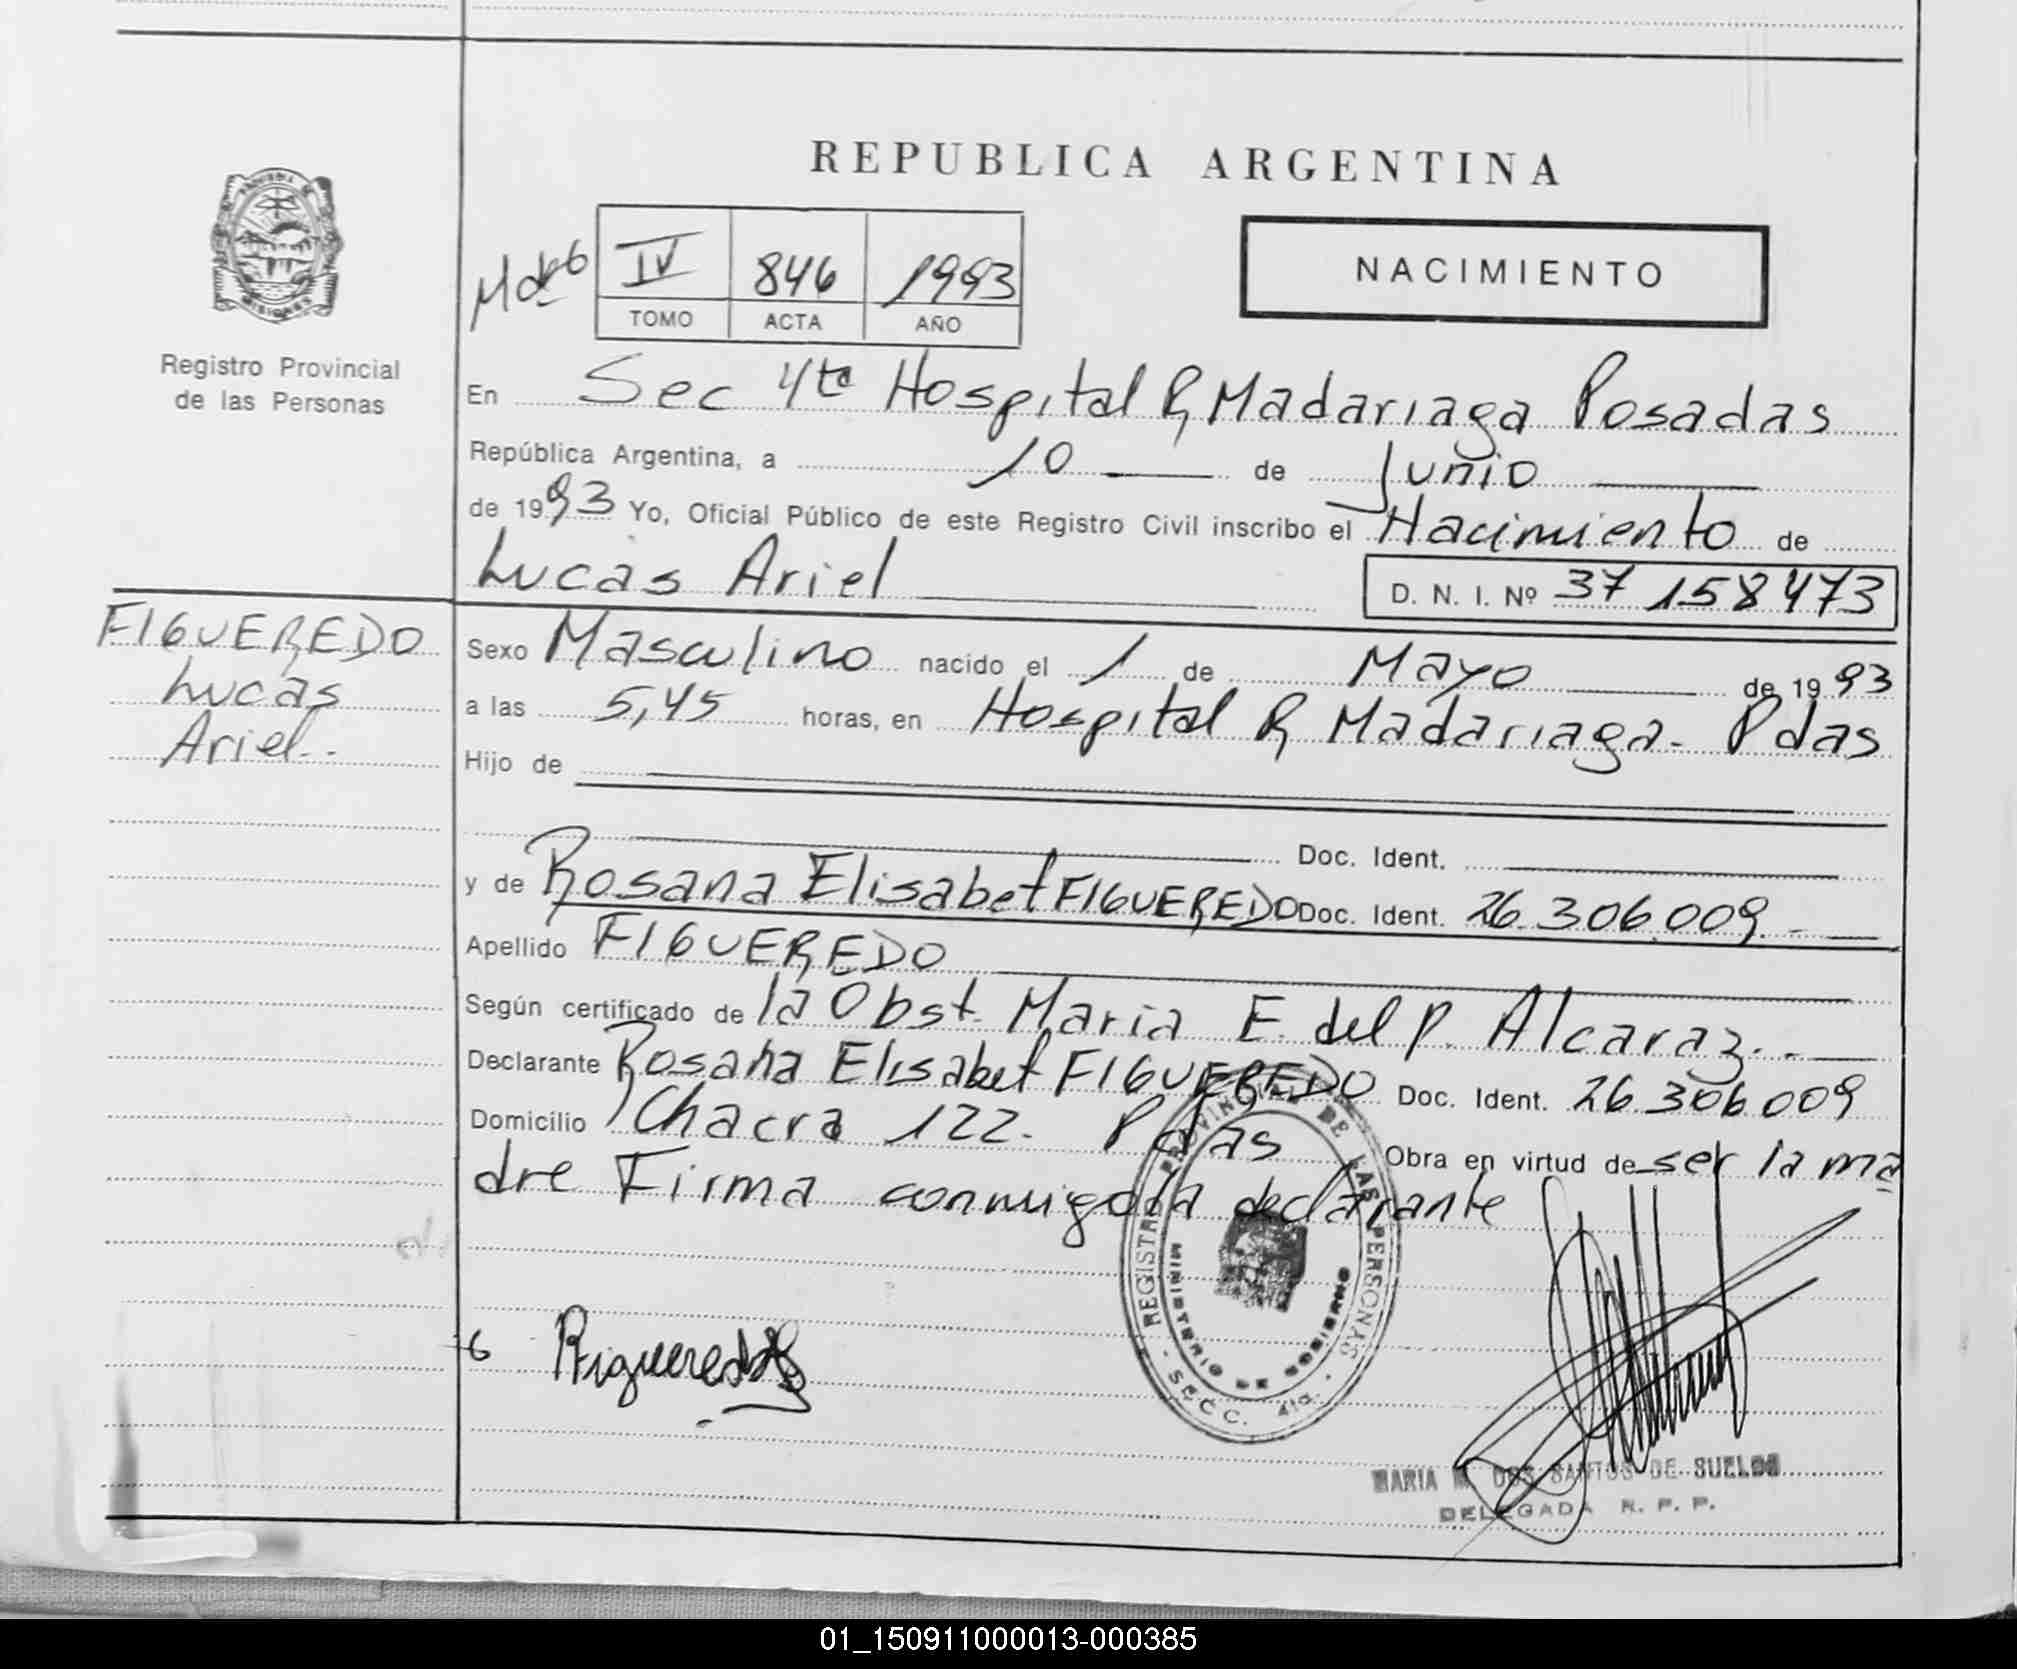 REPUBLICA ARGENTINA
IV 846 1993
TOMO ACTA AÑO
NACIMIENTO
PROVINCIA DE
MISIONES
Registro Provincial
de las Personas
En Sec 4ta Hospital R, Madariaga Posadas
República Argentina, a 10 de Junio
de 1993 Yo, Oficial Público de este Registro Civil inscribo el Nacimiento de
Lucas Ariel D. N. I. Nº 37 158 473
FIGUEREDO
Lucas
Ariel.-
Sexo Masculino nacido el 1 de Mayo de 1993
a las 5,45 horas, en Hospital R, Madariaga- Pdas
Hijo de
Doc. Ident.
y de Rosana Elisabet FIGUEREDO Doc. Ident. 26.306.009.-
Apellido FIGUEREDO
Según certificado de la Obst. Maria E. del P. Alcaraz.-
Declarante Rosana Elisabet FIGUEREDO Doc. Ident. 26.306.009
Domicilio Chacra 122. Pdas Obra en virtud de ser la ma
dre Firma conmigo la declarante
REGISTRO PROVINCIAL DE LAS PERSONAS
MINISTERIO DE GOBIERNO
SECC. 4ta.
RFigueredo
MARIA M. DOS SANTOS DE SUELDO
DELEGADA R. P. P.
01_150911000013-000385